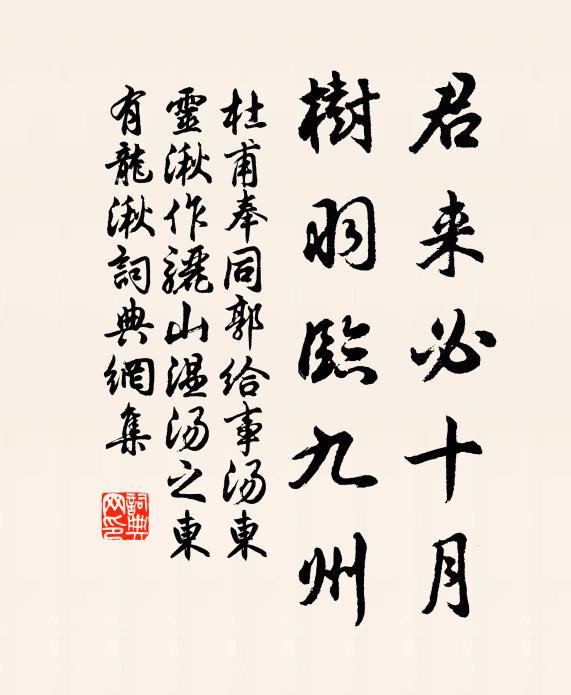 君来必十月
樹羽臨九州
杜甫奉同郭给事汤東
靈湫作驪山温汤之東
有龍湫詞典網集
詞典网印